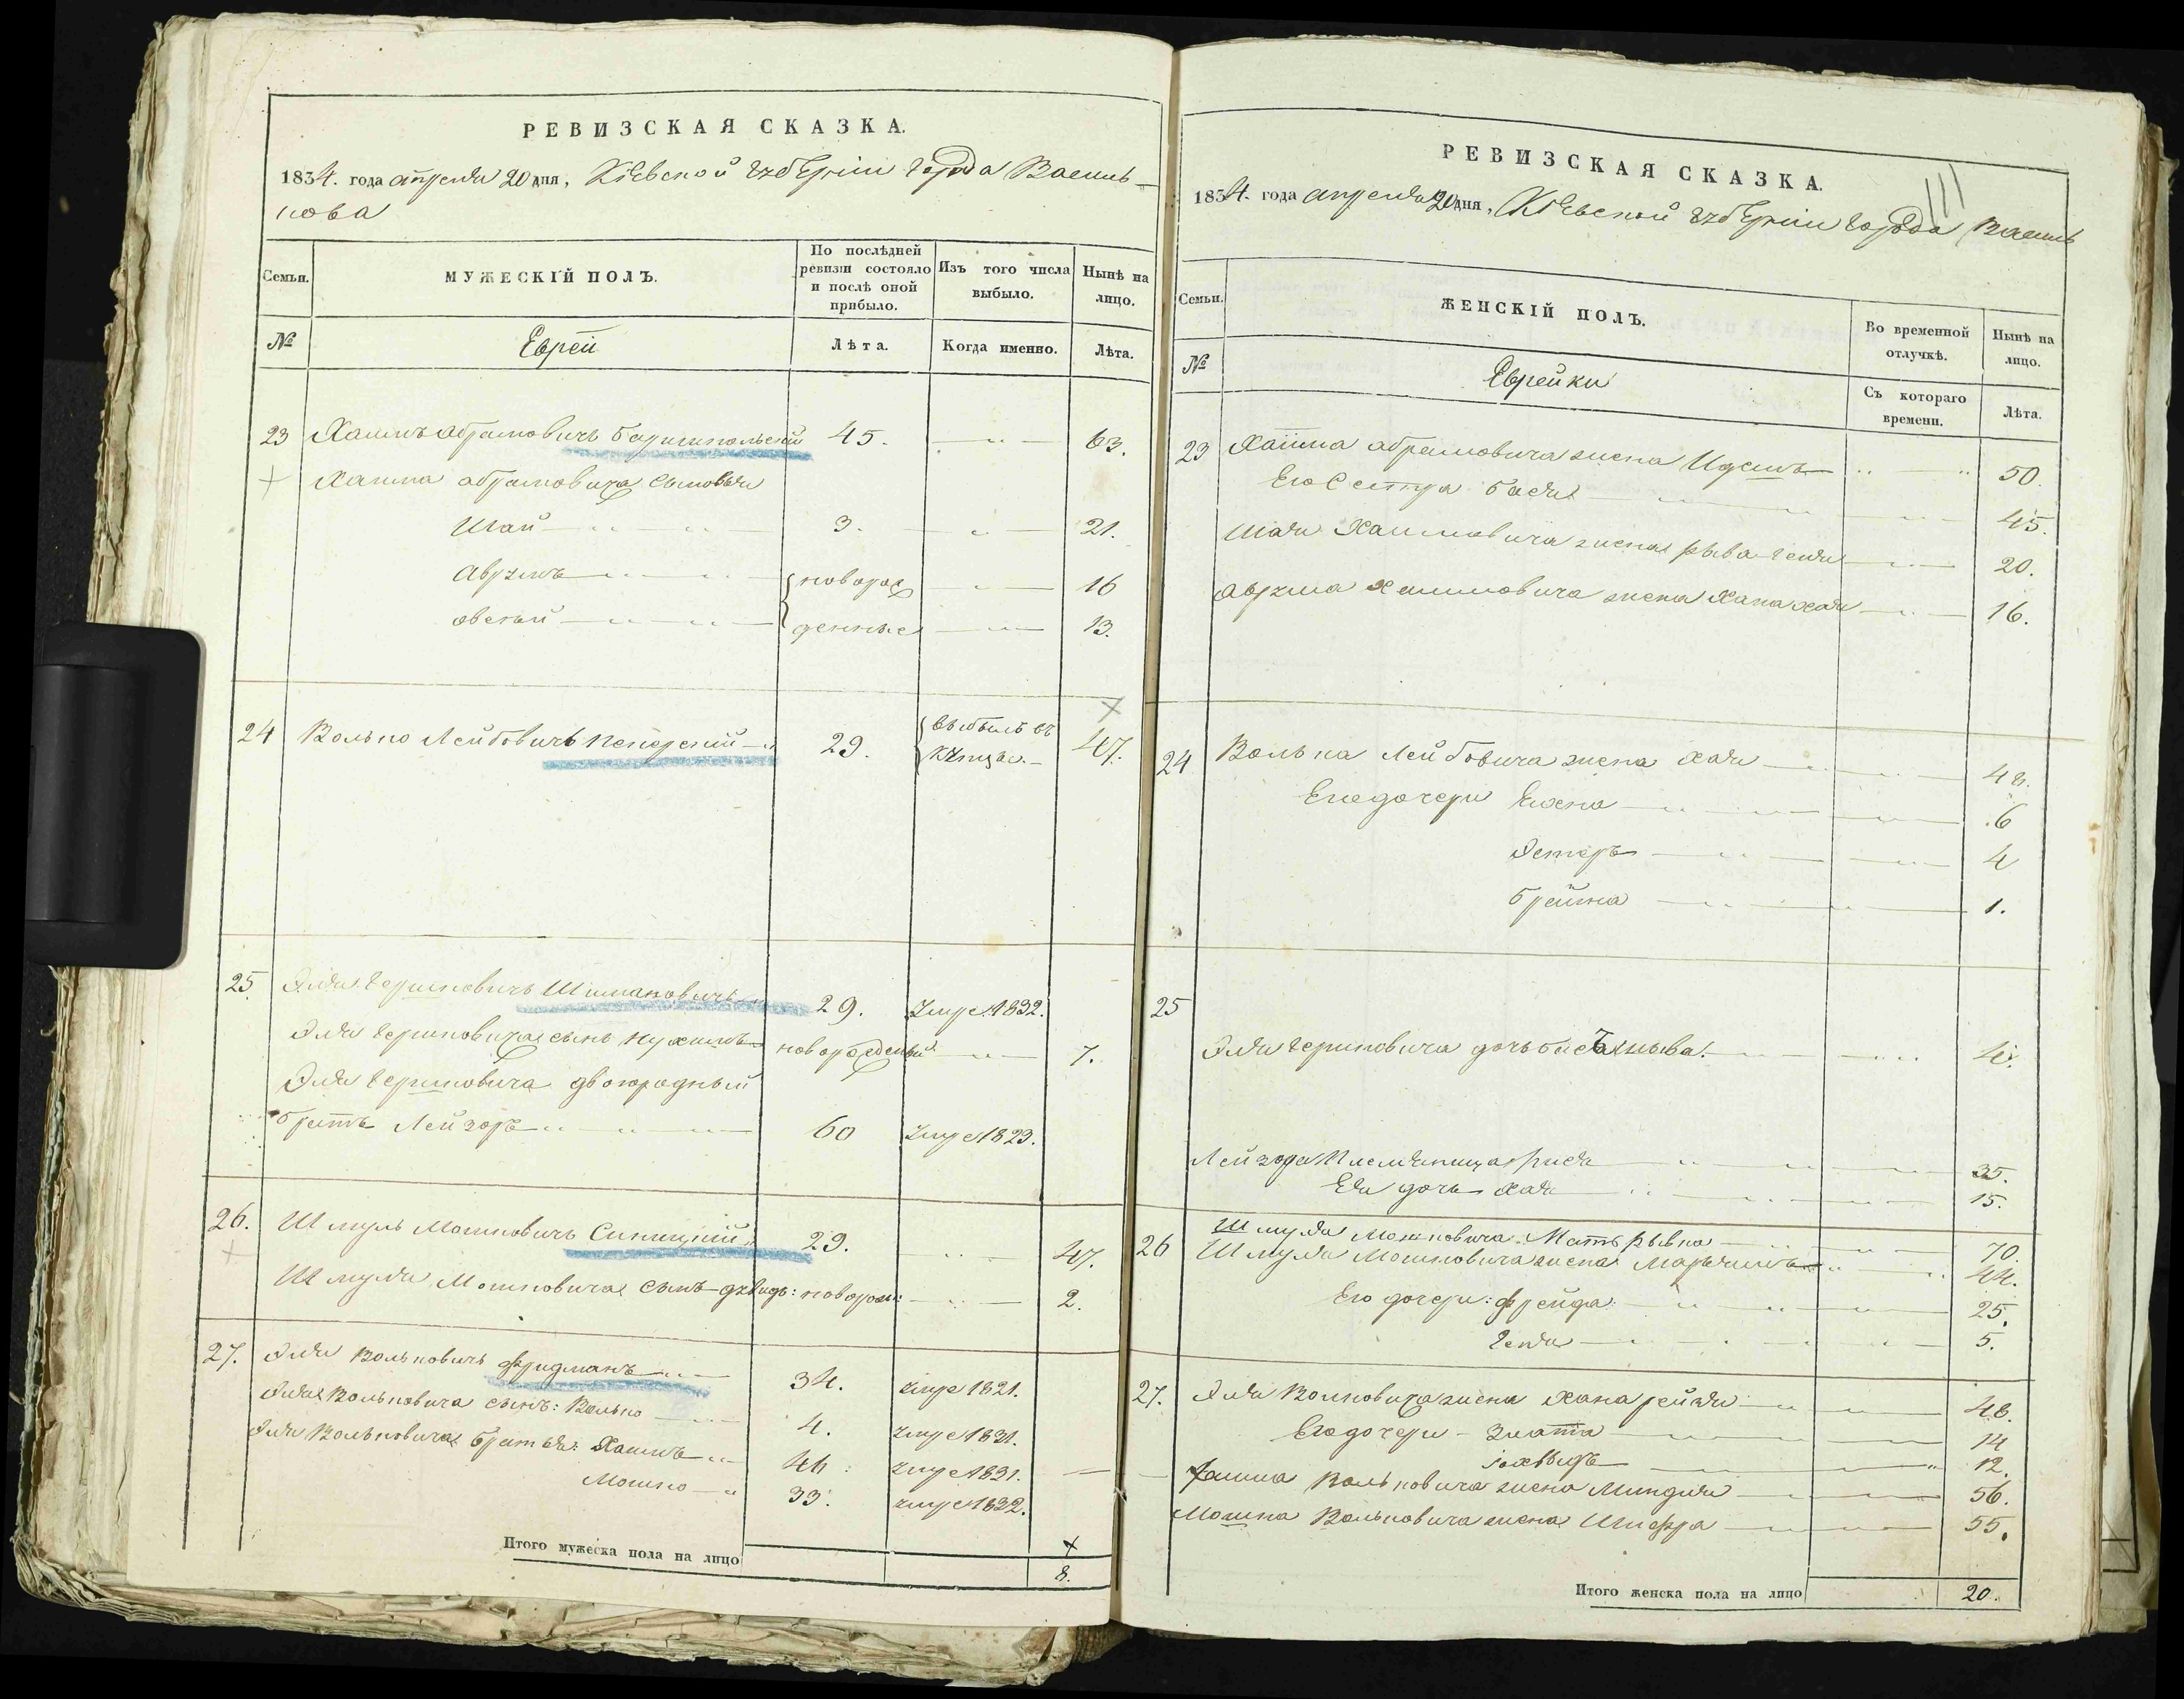 РЕВИЗСКАЯ СКАЗКА.
1834. года апреля 20 дня, Кіевской губерніи города Василь-
кова
Семьи. МУЖЕСКІЙ ПОЛЪ. По послѣдней ревизіи состояло и послѣ оной прибыло. Изъ того числа выбыло. Нынѣ на лицо.
№ Еврей Лѣта. Когда именно. Лѣта.
23 Хаимъ Абрамовичъ Баришпольский 45. 63.
Хаима Абрамовича сыновья
Шай 3. 21.
Аврумъ новорож 16
Овсей денные 13.
24 Волько Лейбовичъ 29. выбылъ въ 47.
купцы
25 Эля Гершковичъ Шимановичъ 29. умре 1832.
Эля Гершковича сынъ Нухимъ новорожденый 7.
Эля Гершковича двоюродный
братъ Лейзоръ 60 умре 1823.
26. Шмуль Мошковичъ Синицкий 29. 47.
Шмуля Мошковича сынъ Дувидъ: новорож: 2.
27. Эля Вольковичъ Фридманъ 34. умре 1821.
Эля Вольковича сынъ: Волько 4. умре 1831.
Эля Вольковича братья: Хаимъ 46: умре 1831.
Мошко 33: умре 1832.
Итого мужеска пола на лицо 8.
РЕВИЗСКАЯ СКАЗКА.
1834. года апреля 20 дня, Кіевской губерніи города Василь
Семьи. ЖЕНСКІЙ ПОЛЪ. Во временной отлучкѣ. Нынѣ на лицо.
№ Еврейки Съ котораго времени. Лѣта.
23 Хаима Абрамовича жена 50.
Его сестра Бася 45.
Шая Хаимовича жена Рыва-Геня 20.
Аврума Хаимовича жена Хана Хая 16.
24 Волька Лейбовича жена Хая 48.
Его дочери 6
Эстеръ 4
Брейна 1.
25
Эля Гершковича дочь 4.
Лейзора племяница Рися 35.
Ея дочь Хая 15.
26 Шмуля Мошковича Мать Рывка 70.
Шмуля Мошковича жена Марьямъ 44.
Его дочери: Фрейда 25.
Геня 5.
27. Эля Волковича жена Хана Рейзя 48.
Его дочери - Злата 14
12.
Хаима Вольковича жена Миндля 56.
Мошка Вольковича жена Шифра 55.
Итого женска пола на лицо 20.